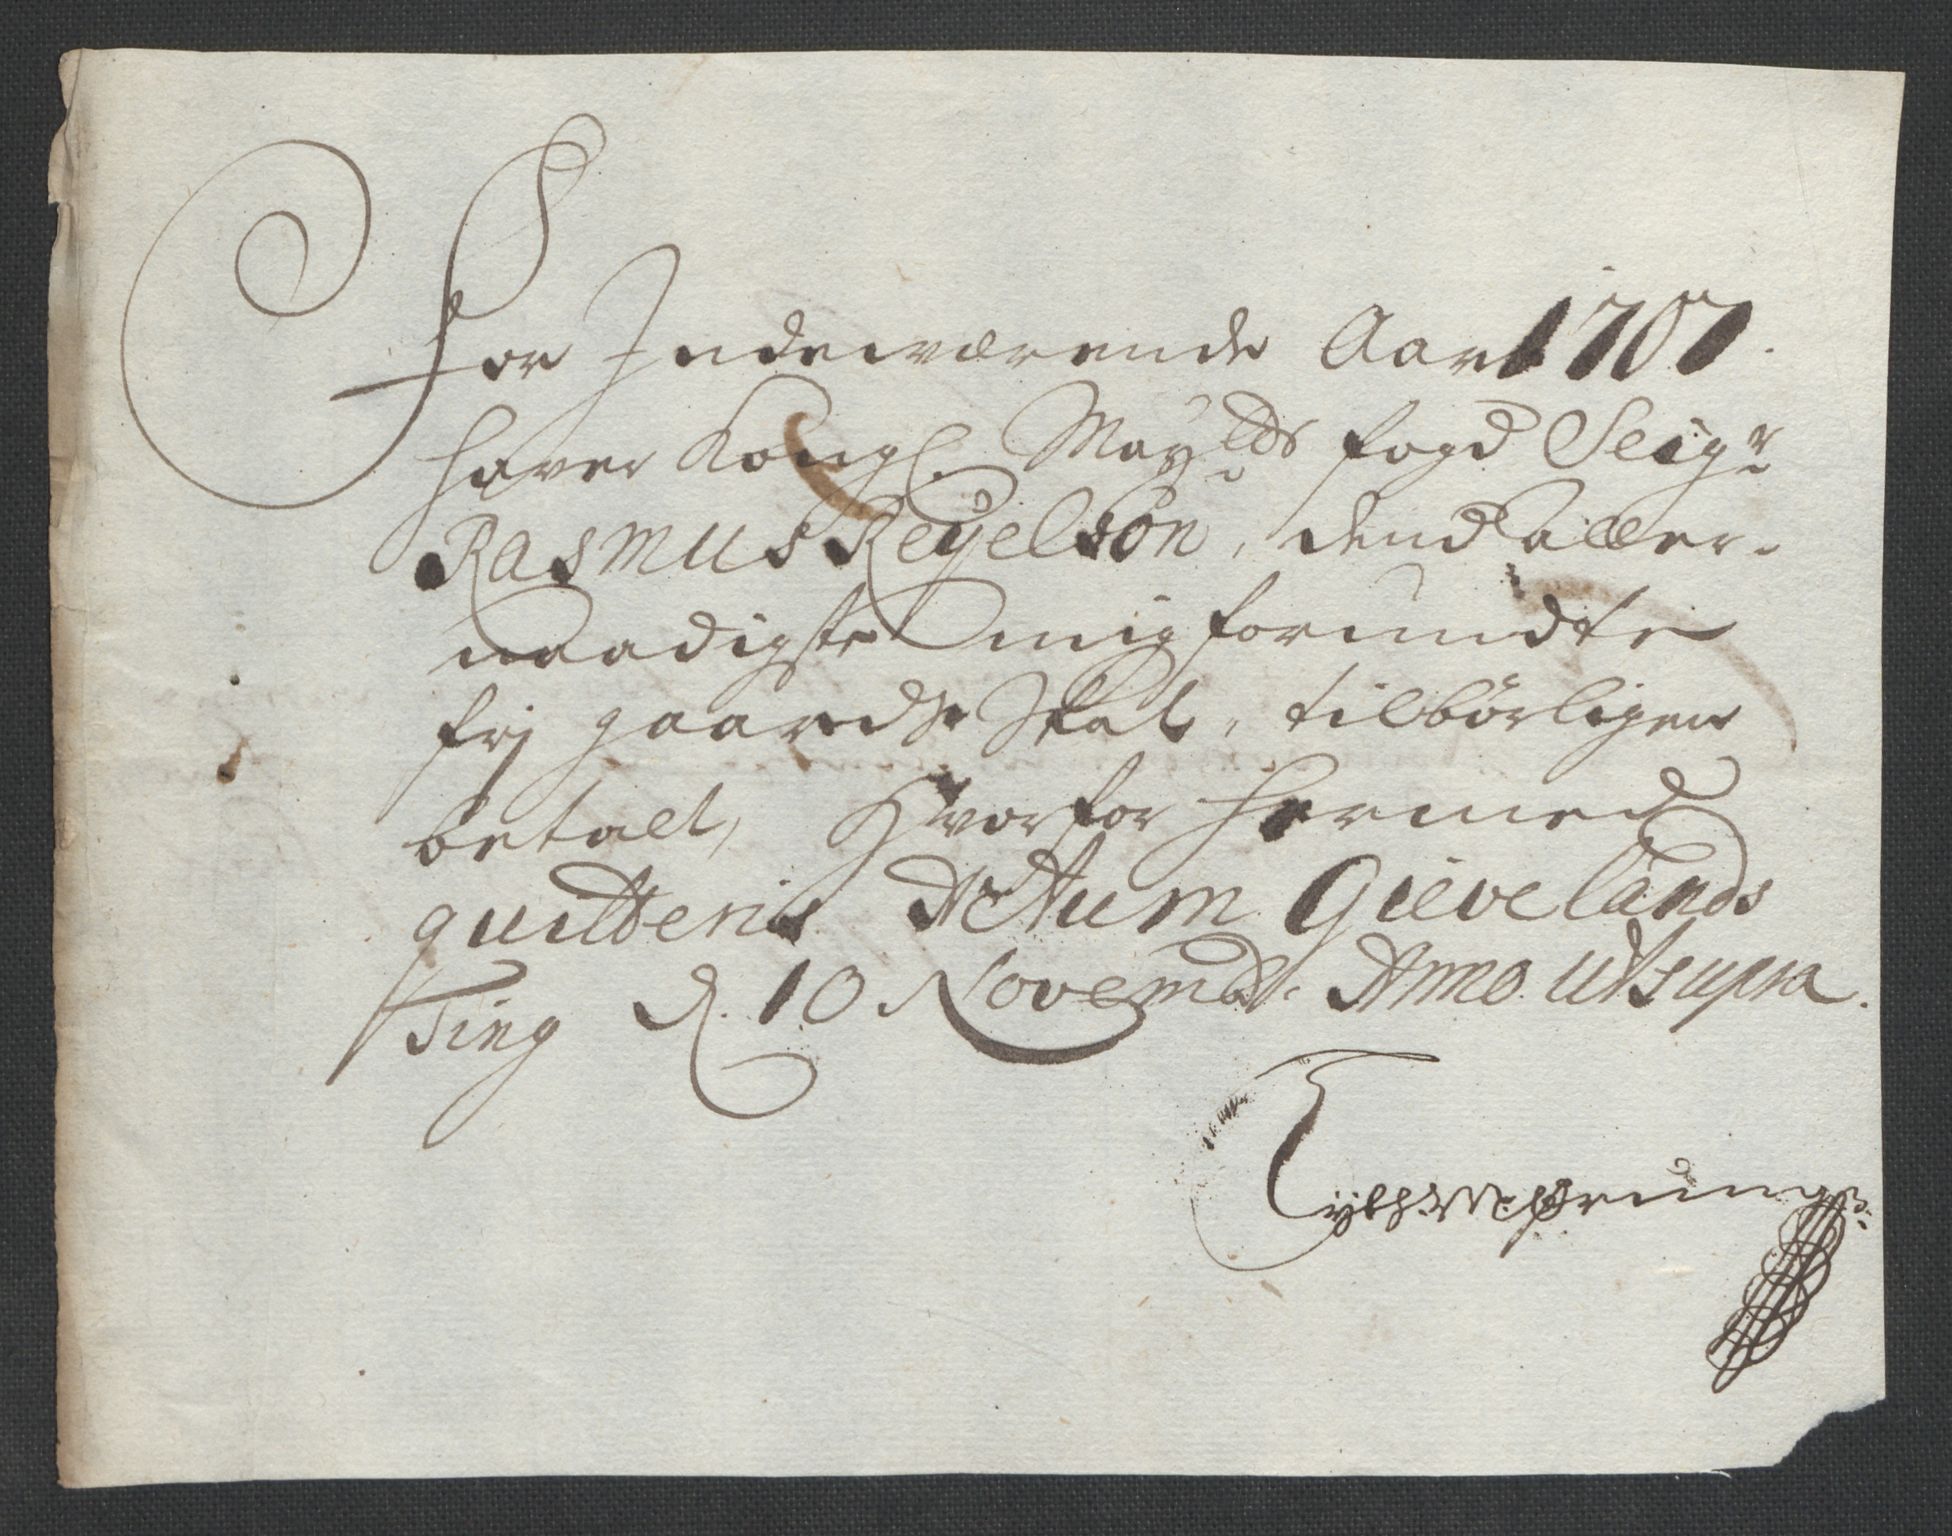 For Indeværende Aar 1707.
haver Kongl. May:tts fogd Seig:r
Rasmus Keyelsøn, dend aller-
naadigste mig forundte
frj gaardse Skat, tilbørligen
betalt, Hvorfor hermed
quitteris Actum Gievelands
Ting d. 10 Novembr. Anno ut supra.